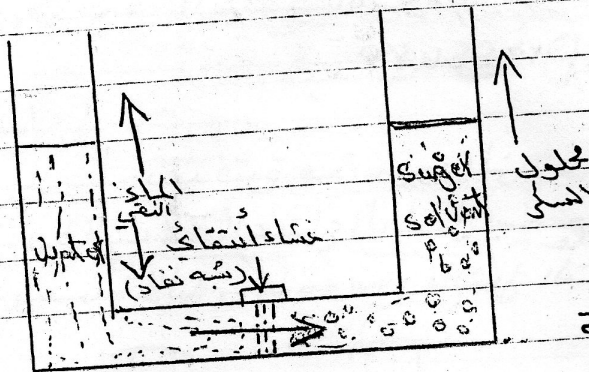 الماء
النقي
water
غشاء أنتقائي
(شبه نفاذ)
suger
selvet
محلول
السكر